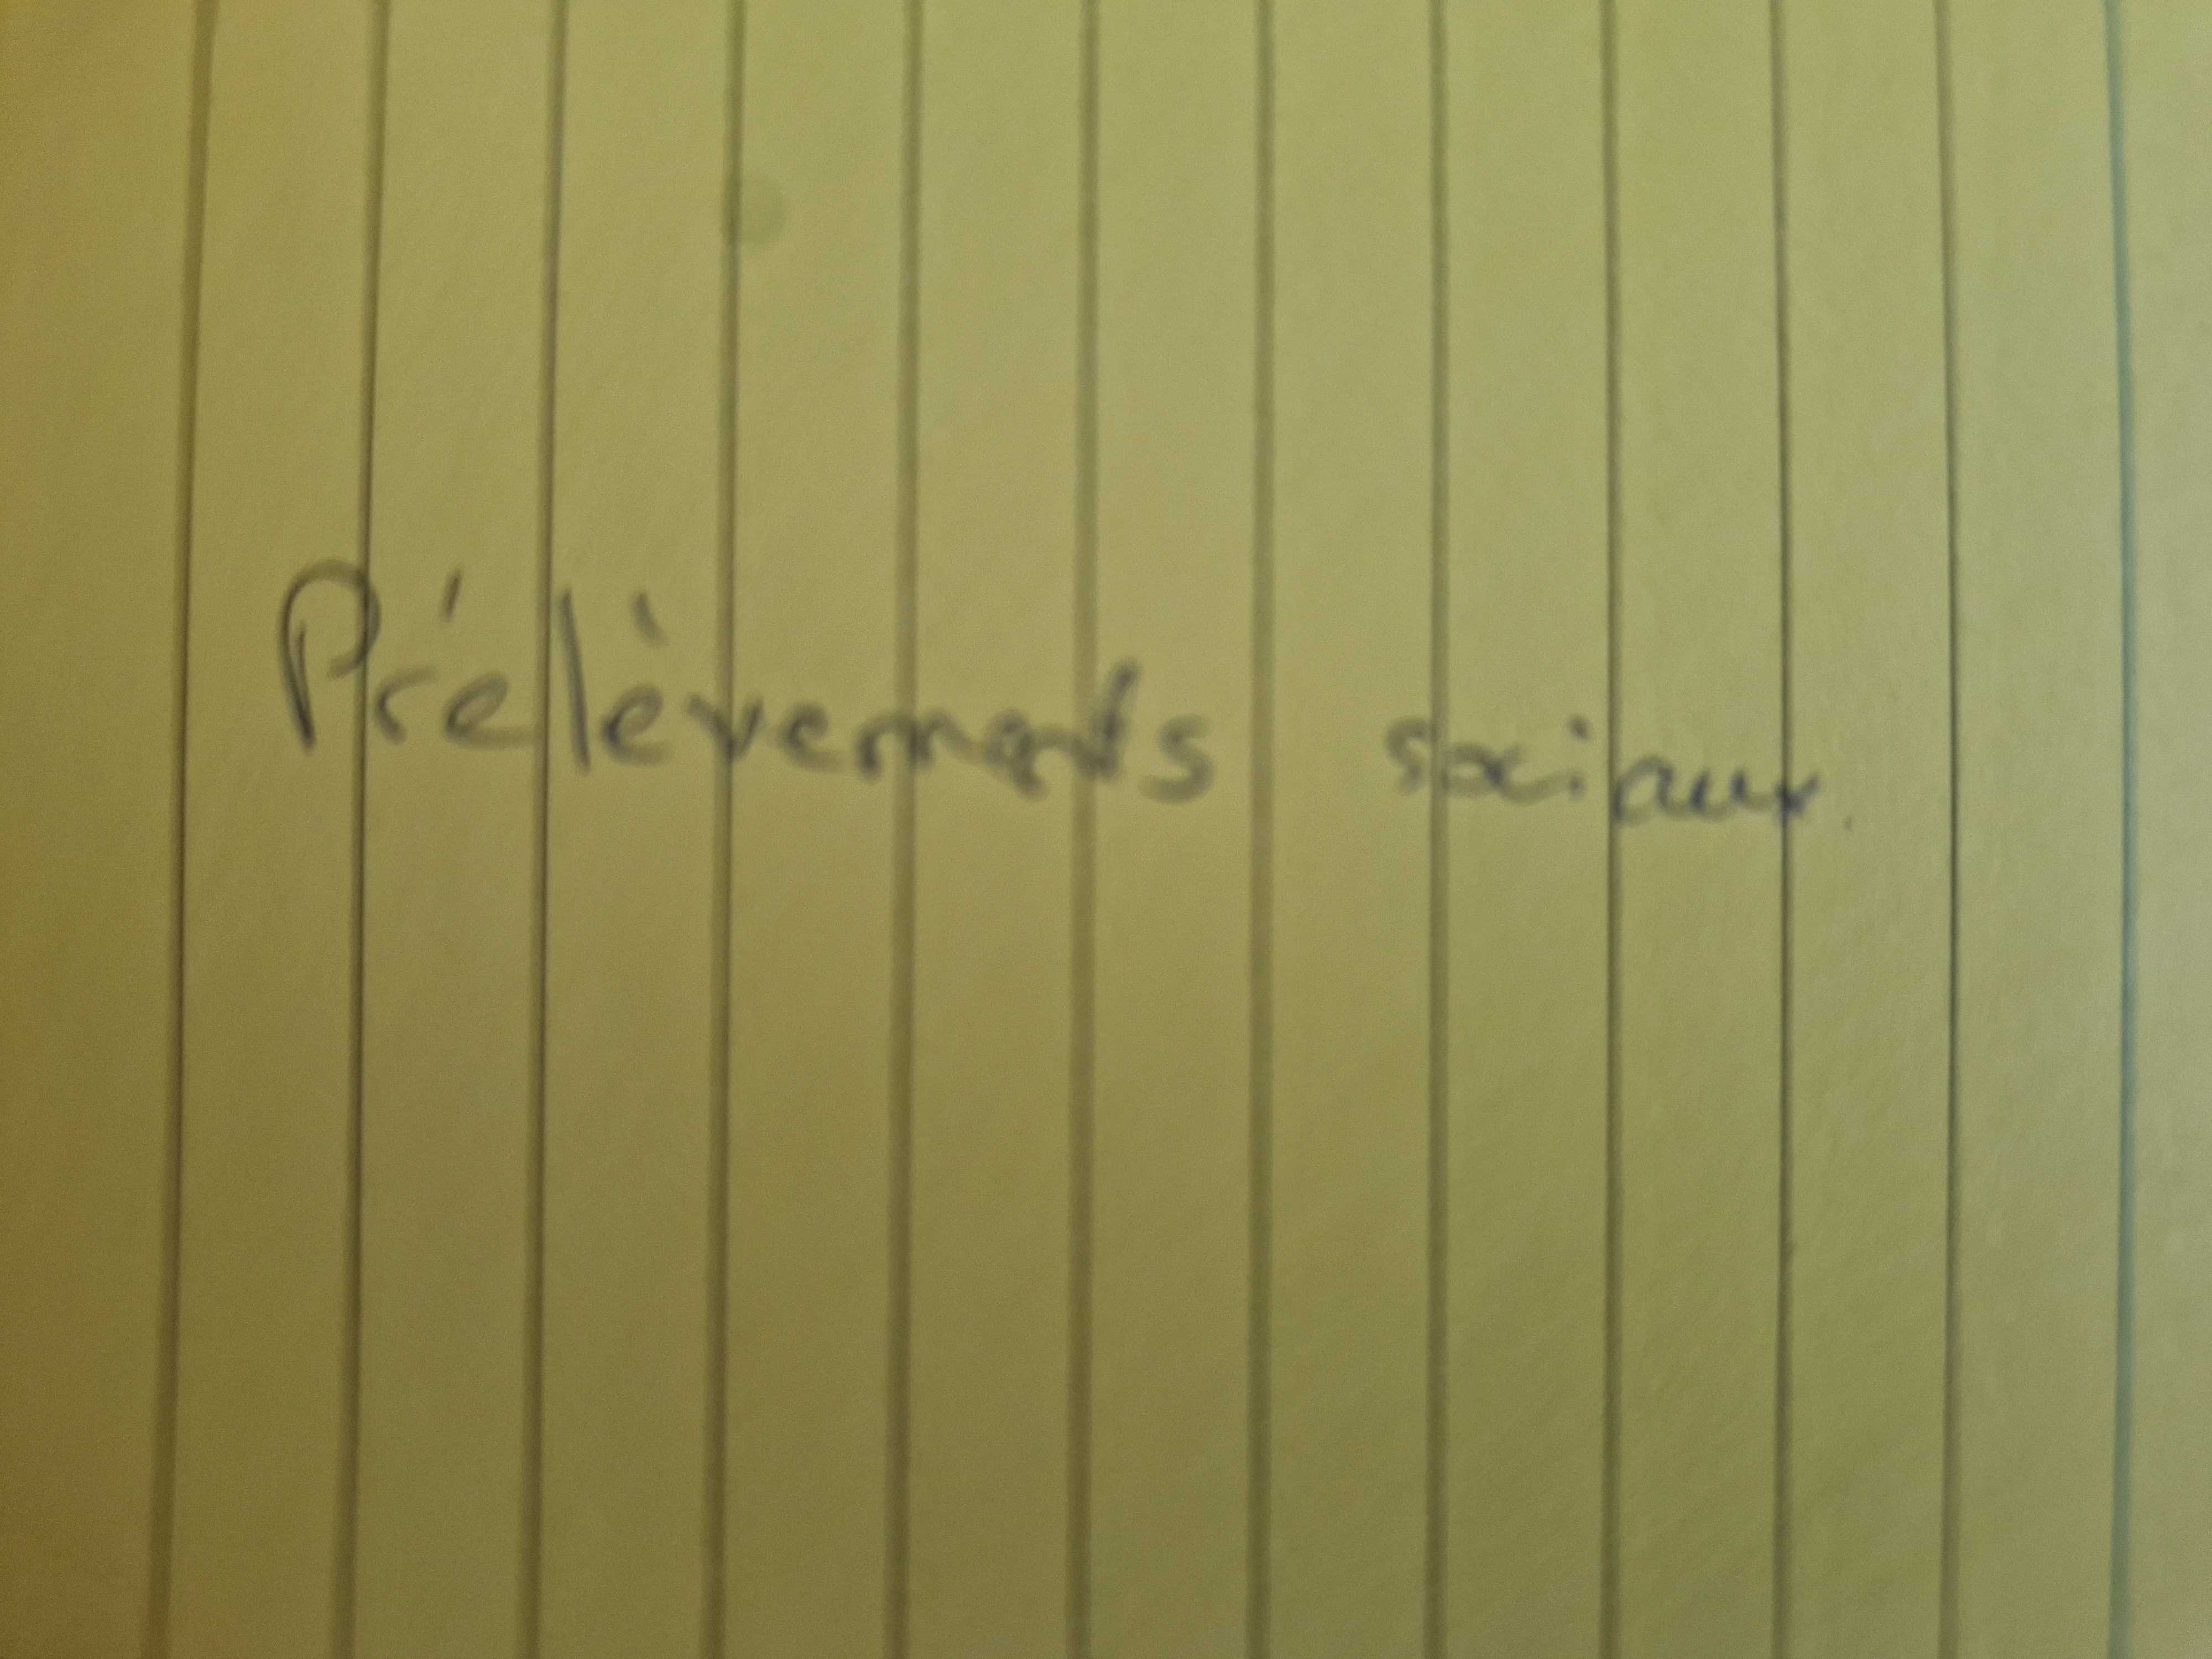 Prélèvements sociaux.